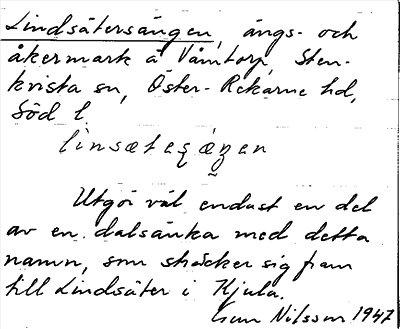 Lindsätersängen, ängs- och
åkermark å Våmtorp, Sten-
kvista sn, Öster-Rekarne hd,
Söd l.
Utgör väl endast en del
av en dalsänka med detta
namn, som sträcker sig fram
till Lindsäter i Kjula.
Nilsson 1947